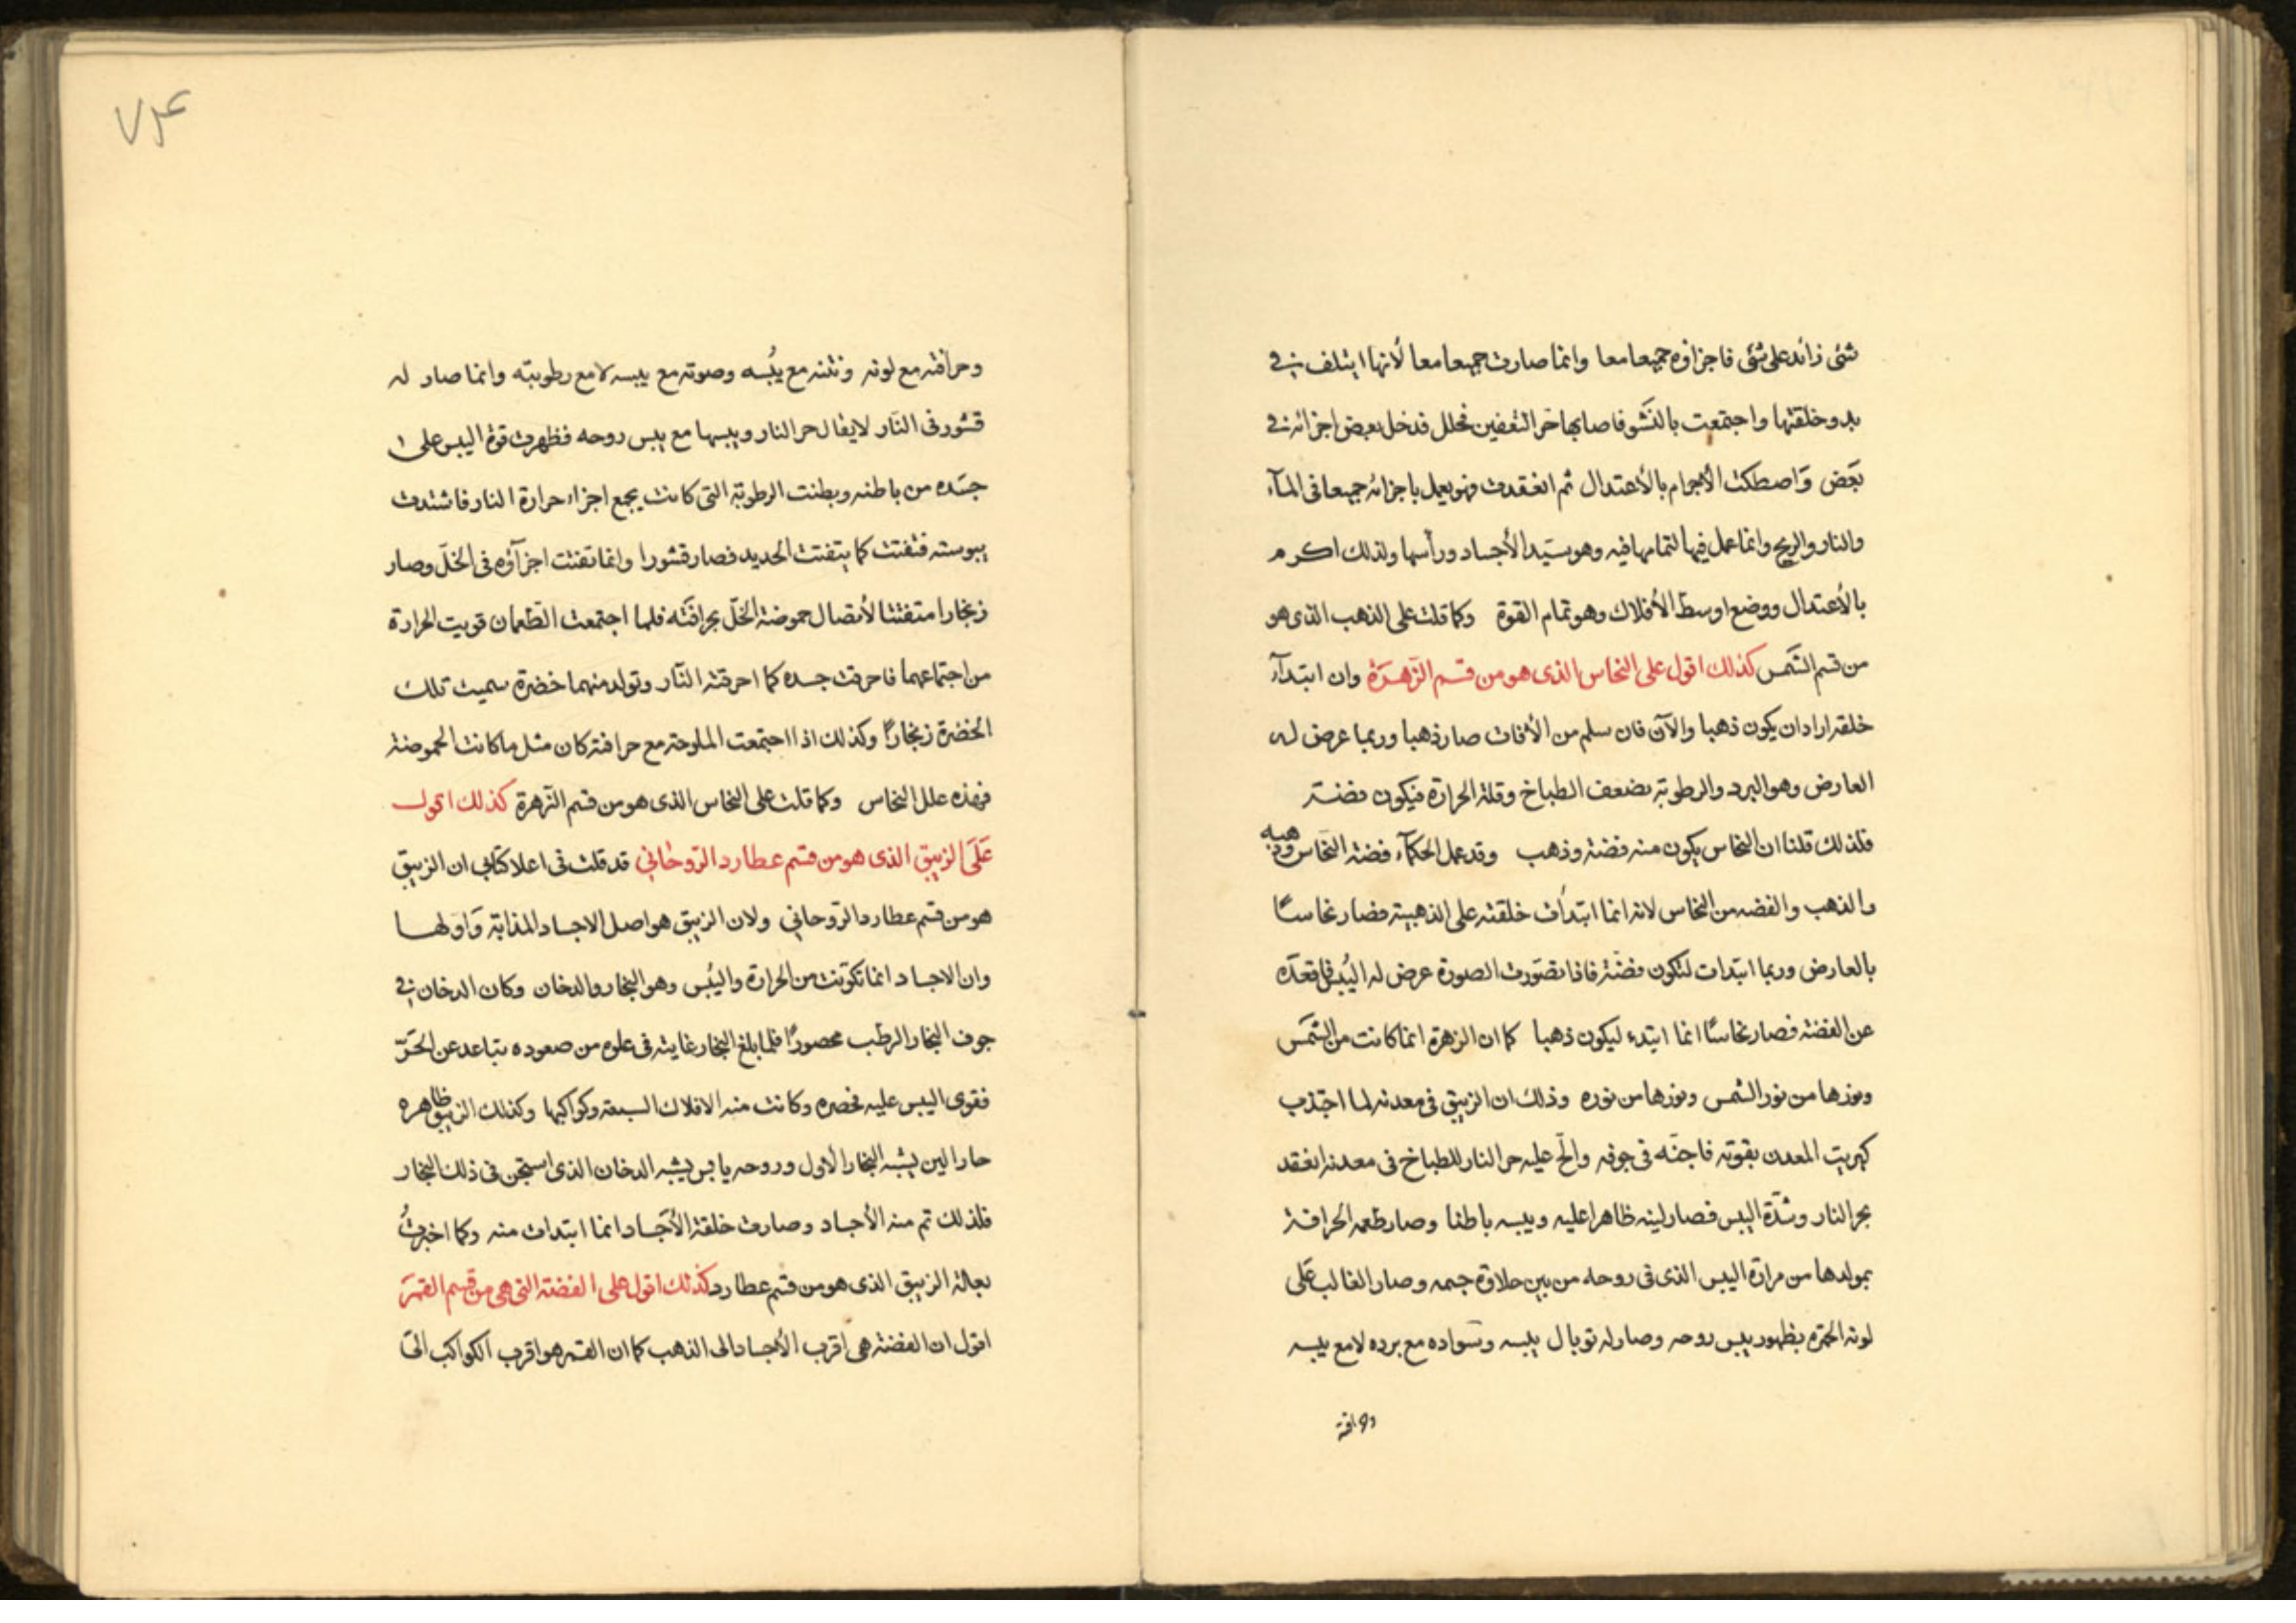 شئ زائد على شئ فاجزاؤه جميعا معا وانما صارت جميعا معا لأنها ايتلف في
بدو خلقتها واجتمعت بالنشو فاصابها حر التعفين فحلل فدخل بعض اجزائه في
بعض واصطكت الأجرام بالأعتدال ثم انعقدت فهو يعمل باجزائه جميعا فى المآء
والنار والريح وانما عمل فيها لتمامها فيه وهو سيد الأجساد ورأسها ولذلك اكرم
بالأعتدال ووضع اوسط الأفلاك وهو تمام القوة وكما قلت على الذهب الذى هو
من قسم الشمس كذلك اقول على النحاس الذى هو من قسم الزهرة وان ابتدآء
خلقته اراد ان يكون ذهبا والآن فان سلم من الأفات صار ذهبا وربما عرض له
العارض وهو البرد والرطوبة بضعف الطباخ وقلة الحرارة فيكون فضة
فلذلك قلنا ان النحاس يكون منه فضة وذهب وقد عمل الحكمآء فضة النحاس وذهبه
والذهب والفضه من النحاس لانه انما ابتدأت خلقته على الذهبية فصار نحاساً
بالعارض وربما ابتدات لتكون فضة فاذا تصورت الصورة عرض له اليبس فاقعده
عن الفضة فصار نحاساً انما ابتدء ليكون ذهبا كما ان الزهرة انما كانت من الشمس
ونورها من نور الشمس ونورها من نوره وذلك ان الزيبق فى معدنه لما اجتذب
كبريت المعدن بقوته فاجنه فى جوفه والح عليه حر النار للطباخ فى معدنه انعقد
بحر النار وشدة اليبس فصار لينه ظاهرا عليه ويبسه باطنا وصار طعمه الحرافة
بمولدها من مرارة اليبس الذى فى روحه من بين حلاوة جسمه وصار الغالب على
لونه الحمرة بظهور يبس روحه وصار له توبال يبسه وسواده مع برده لا مع يبسه
وحرافته
٧٣٤
وحرافته مع لونه ونتنه مع يبسه وصوته مع يبسه لا مع رطوبته وانما صار له
قشور فى النار لايقال حر النار ويبسها مع يبس روحه فظهرت قوة اليبس على
جسده من باطنه وبطنت الرطوبة التى كانت يجمع اجزاء حرارة النار فاشتدت
يبوسته فتفتت كما يتفتت الحديد فصار قشورا وانما تفتت اجزآؤه فى الخل وصار
زنجارا متفتتا لأتصال حموضة الخل بحرافته فلما اجتمعت الطعمان قويت الحرارة
من اجتماعهما فاحرقت جسده كما احرقته النار وتولد منهما خضرة سميت تلك
الخضرة زنجاراً وكذلك اذا اجتمعت الملوحة مع حرافته كان مثل ما كانت الحموضة
فهذه علل النحاس وكما قلت على النحاس الذى هو من قسم الزهرة كذلك اقول
على الزيبق الذى هو من قسم عطارد الروحاني قد قلت فى اعلا كتابي ان الزيبق
هو من قسم عطارد الروحاني ولان الزيبق هو اصل الاجساد المذابة واولها
وان الاجساد انما تكونت من الحرارة واليبس وهو البخار والدخان وكان الدخان في
جوف البخار الرطب محصوراً فلما بلغ البخار غايته فى علوه من صعوده تباعد عن الحر
فقوى اليبس عليه فحصره وكانت منه الافلاك السبعة وكواكبها وكذلك الزيبق ظاهره
حار الين يشبه البخار الأول وروحه يابس يشبه الدخان الذى استجن فى ذلك البخار
فلذلك تم منه الأجساد وصارت خلقة الأجساد انما ابتدات منه وكما اخبرت
بعالة الزيبق الذى هو من قسم عطارد كذلك اقول على الفضة التى هى من قسم القمر
اقول ان الفضة هى اقرب الأجساد الى الذهب كما ان القمر هو اقرب الكواكب الى